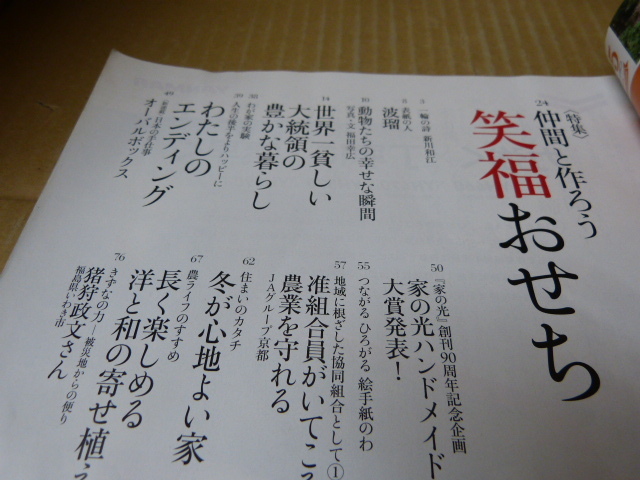 〈特集〉
24 仲間と作ろう
笑福おせち
3 一輪の詩 新川和江
8 表紙の人
波瑠
10 動物たちの幸せな瞬間
写真・文 福田幸広
14 世界一貧しい
大統領の
豊かな暮らし
わたしの
エンディング
日本の手仕事
オーバルボックス
50 『家の光』創刊90周年記念企画
家の光ハンドメイド
大賞発表！
55 つながる ひろがる 絵手紙のわ
57 地域に根ざした協同組合として①
准組合員がいてこ
農業を守れる
JAグループ京都
62 住まいのカタチ
冬が心地よい家
67 農ライフのすすめ
長く楽しめる
洋と和の寄せ植え
76 きずなの力―被災地からの便り
猪狩政文さん
福島県いわき市